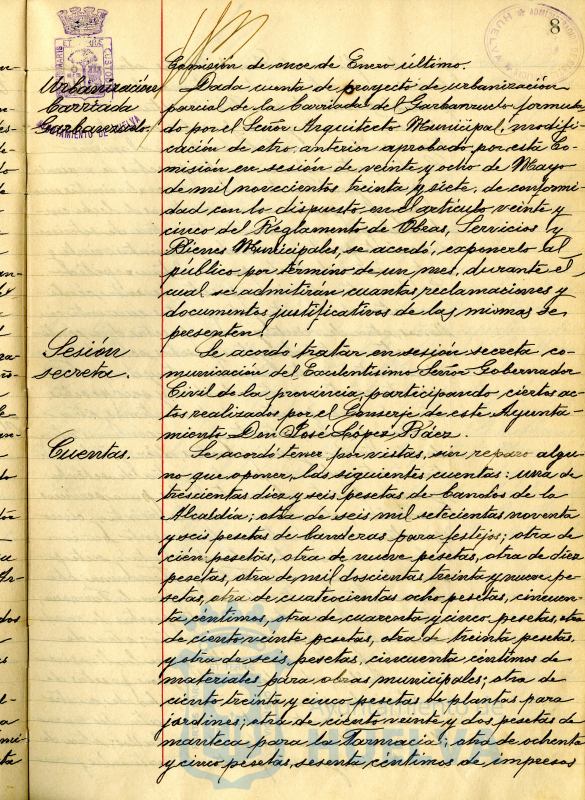 8
Comisión de once de Enero último.
Urbanización
Barriada
Garbanzuelo.
AYUNTAMIENTO DE HUELVA
Dada cuenta de proyecto de urbanización
parcial de la barriada del Garbanzuelo formula-
do por el Señor Arquitecto Municipal, modifi-
cación de otro anterior aprobado por esta Co-
misión en sesión de veinte y ocho de Mayo
de mil novecientos treinta y siete, de conformi-
dad con lo dispuesto en el artículo veinte y
cinco del Reglamento de Obras, Servicios y
Bienes Municipales, se acordó, exponerlo al
público por término de un mes, durante el
cual se admitirán cuantas reclamaciones y
documentos justificativos de las mismas se
presenten.
Sesión
secreta.
Se acordó tratar en sesión secreta co-
municación del Excelentísimo Señor Gobernador
Civil de la provincia, participando ciertos ac-
tos realizados por el Conserje de este Ayunta-
miento Don José López Báez.
Cuentas.
Se acordó tener por vistas, sin reparo algu-
no que oponer, las siguientes cuentas: una de
trescientas diez y seis pesetas de bandos de la
Alcaldía; otra de seis mil setecientas noventa
y seis pesetas de banderas para festejos; otra de
cién pesetas, otra de nueve pesetas, otra de diez
pesetas, otra de mil doscientas treinta y nueve pe-
setas, otra de cuatrocientas ocho pesetas, cincuen-
ta céntimos, otra de cuarenta y cinco pesetas, otra
de ciento veinte pesetas, otra de treinta pesetas
y otra de seis pesetas, cincuenta céntimos de
materiales para obras municipales; otra de
ciento treinta y cinco pesetas de plantas para
jardines; otra de ciento veinte y dos pesetas de
manteca para la Farmacia; otra de ochenta
y cinco pesetas, sesenta céntimos de impresos
Ayuntamiento de
HUELVA